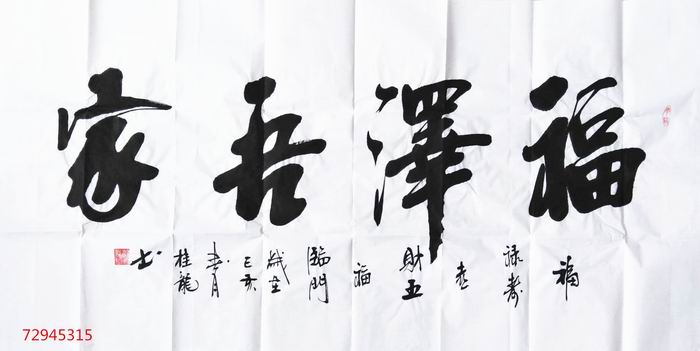 福澤吾家
福
祿壽
喜
財五
福
臨門
歲在
己亥
春月
桂龍
书
72945315